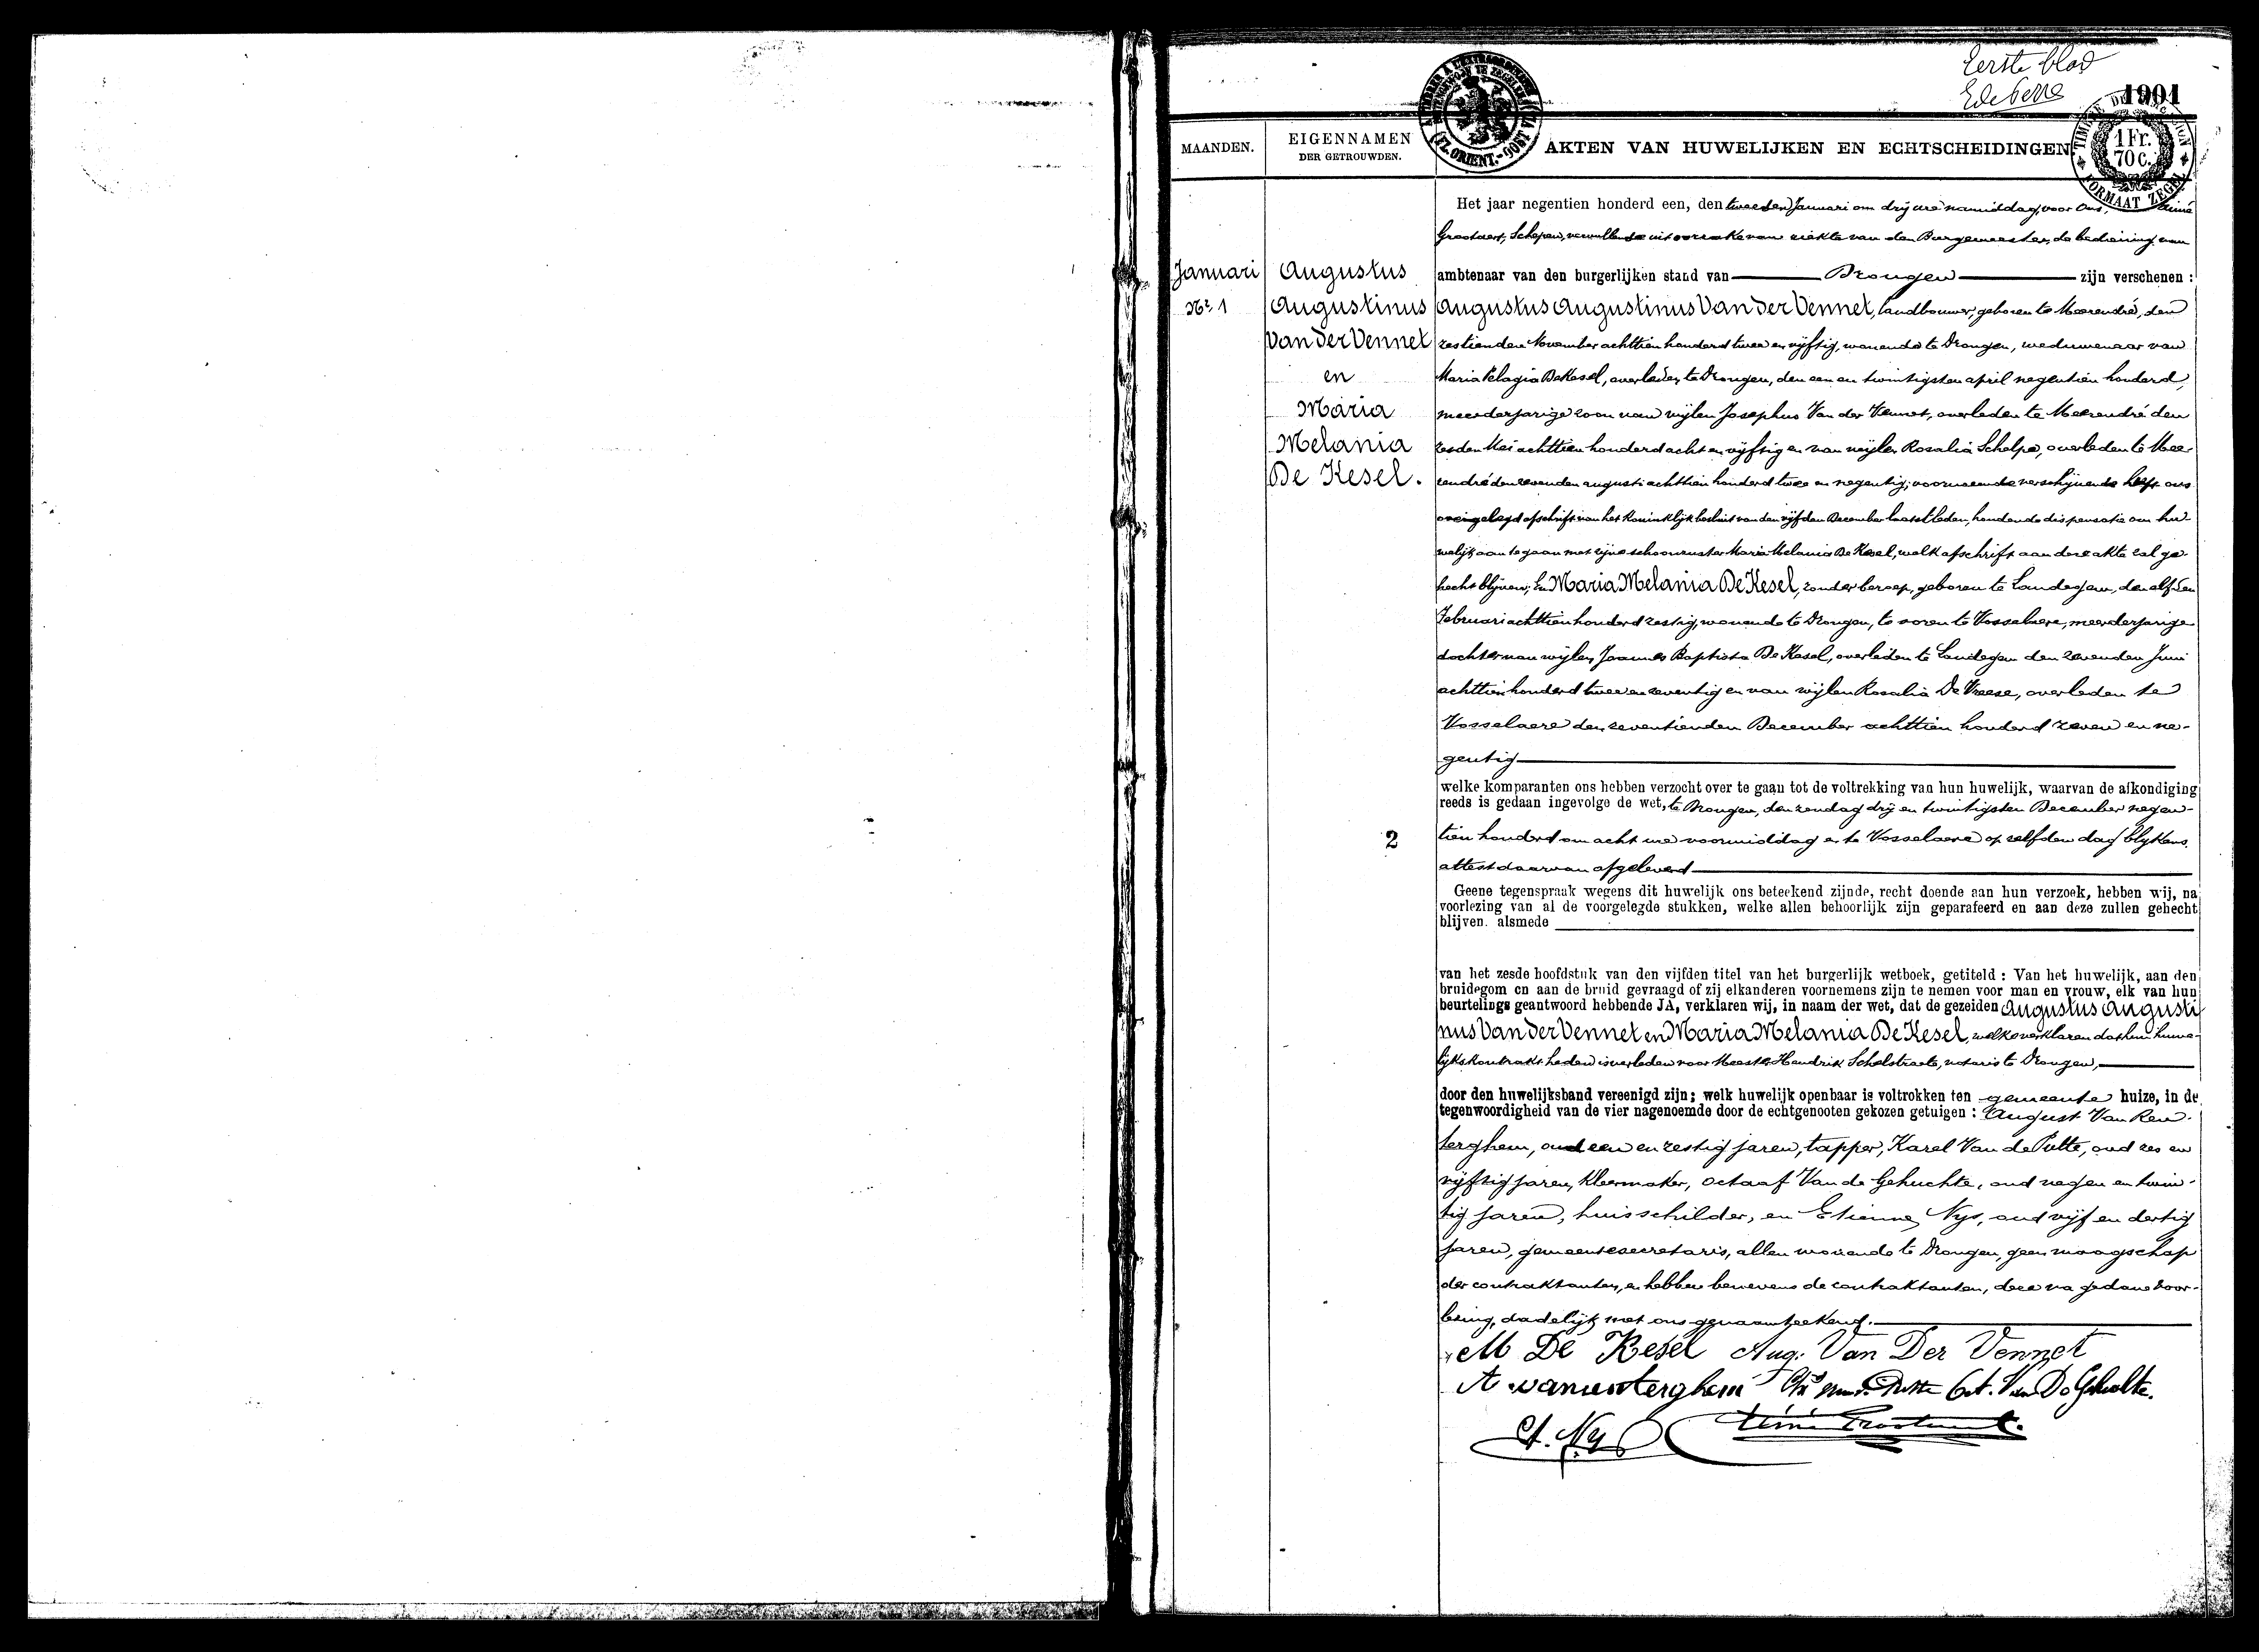 Eerste blad
1901
MAANDEN.
EIGENNAMEN
DER GETROUWDEN.
AKTEN VAN HUWELIJKEN EN ECHTSCHEIDINGEN
FL. ORIENT.-OOST
1 Fr.
70 C.
FORMAAT ZEGEL
Januari
Nr. 1
Augustus
Augustinus
Van der Vennet
en
Maria
Melania
De Kesel.
2
Het jaar negentien honderd een, den tweeden Januari om drij ure namiddag, voor Ons, Aimé
Grootaert, Schepen, vervullende uit oorzake van ziekte van den Burgemeester, de bediening van
ambtenaar van den burgerlijken stand van Drongen zijn verschenen :
Augustus Augustinus Van der Vennet, landbouwer, geboren te Meerendré, den
zestienden November achttien honderd twee en vijftig, wonende te Drongen, weduwenaar van
Maria Pelagia De Kesel, overleden te Drongen, den een en twintigsten april negentien honderd,
meerderjarige zoon van wijlen Josephus Van der Vennet, overleden te Meerendré den
zesden Mei achttien honderd acht en vijftig en van wijlen Rosalia Schelpe, overleden te Mee-
rendré den zevenden augusti achttien honderd twee en negentig; voornoemde verschijnende heeft ons
overgelegd afschrift van het Koninklijk besluit van den vijfden December laatstleden, houdende dispensatie om hu-
welijk aan te gaan met zijne schoonzuster Maria Melania De Kesel, welk afschrift aan deze akte zal ge-
hecht blijven; En Maria Melania De Kesel, zonder beroep, geboren te Landegem, den elfden
Februari achttien honderd zestig, wonende te Drongen, te voren te Vosselaere, meerderjarige
dochter van wijlen Joannes Baptista De Kesel, overleden te Landegem den zevenden Juni
achttien honderd twee en zeventig en van wijlen Rosalia De Vreese, overleden te
Vosselaere den zeventienden December achttien honderd zeven en ne-
gentig
welke komparanten ons hebben verzocht over te gaan tot de voltrekking van hun huwelijk, waarvan de afkondiging
reeds is gedaan ingevolge de wet, te Drongen, den zondag drij en twintigsten December negen-
tien honderd om acht ure voormiddag en te Vosselaere op zelfden dag blijkens
attest daarvan afgeleverd
Geene tegenspraak wegens dit huwelijk ons beteekend zijnde, recht doende aan hun verzoek, hebben wij, na
voorlezing van al de voorgelegde stukken, welke allen behoorlijk zijn geparafeerd en aan deze zullen gehecht
blijven. alsmede
van het zesde hoofdstuk van den vijfden titel van het burgerlijk wetboek, getiteld : Van het huwelijk, aan den
bruidegom en aan de bruid gevraagd of zij elkanderen voornemens zijn te nemen voor man en vrouw, elk van hun
beurtelings geantwoord hebbende JA, verklaren wij, in naam der wet, dat de gezeiden Augustus Augusti
nus Van der Vennet en Maria Melania De Kesel, welke verklaren dat hun huwe-
lijkskontrakt heden is verleden voor Meester Hendrik Schelstraete, notaris te Drongen,
door den huwelijksband vereenigd zijn; welk huwelijk openbaar is voltrokken ten gemeente huize, in de
tegenwoordigheid van de vier nagenoemde door de echtgenooten gekozen getuigen : August Van Ren-
terghem, oud een en zestig jaren, tapper, Karel Van de Putte, oud zes en
vijftig jaren, kleermaker, Octaaf Van de Gehuchte, oud negen en twin-
tig jaren, huisschilder, en Etienne Nys, oud vijf en dertig
jaren, gemeentesecretaris, allen wonende te Drongen, geen maagschap
der contraktanten, en hebben benevens de contraktanten, deze na gedane voor-
lezing, dadelijk met ons genaamteekend.
M De Kesel Aug. Van Der Vennet
A vanrenterghem Oct. Van De Gehuchte.
Et. Nys Aimé Grootaert.